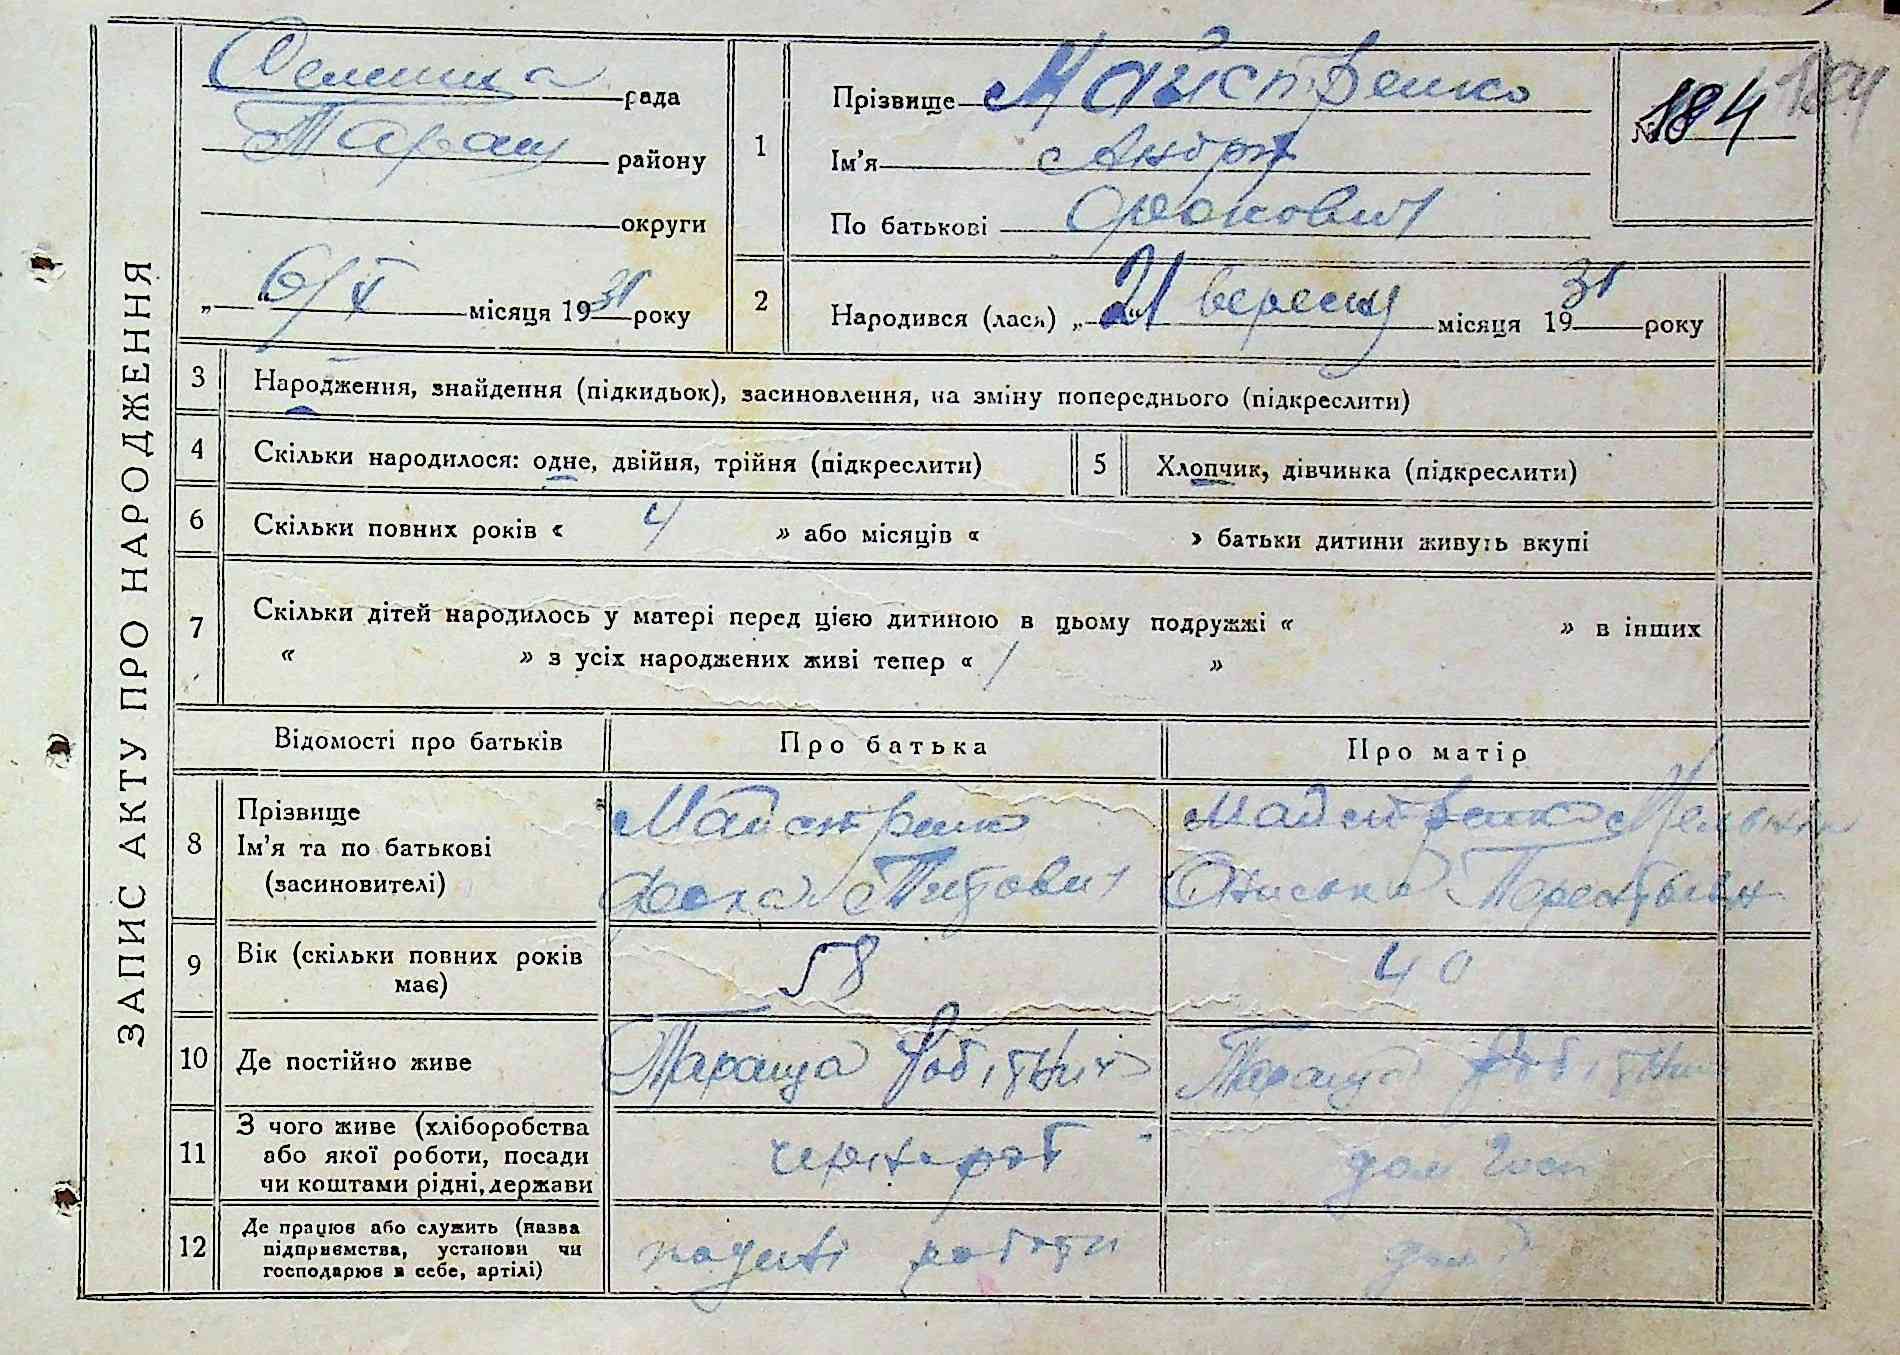 ЗАПИС АКТУ ПРО НАРОДЖЕННЯ
Селищна рада
Таращ району
округи
„ 6/X місяця 1931 року
1
Прізвище Майстренко
Ім'я Андрій
По батькові Фокович
№ 184
184
2
Народився (лася) „21 вересня місяця 1931 року
3 Народження, знайдення (підкидьок), засиновлення, на зміну попереднього (підкреслити)
4 Скільки народилося: одне, двійня, трійня (підкреслити) 5 Хлопчик, дівчинка (підкреслити)
6 Скільки повних років « 4 » або місяців « » батьки дитини живуть вкупі
7 Скільки дітей народилось у матері перед цією дитиною в цьому подружжі « » в інших
« » з усіх народжених живі тепер « 1 »
Відомості про батьків Про батька Про матір
8 Прізвище Ім'я та по батькові (засиновителі)
Майстренко
Фока Титович
Майстренко
Терентьевн
9 Вік (скільки повних років має) 58 40
10 Де постійно живе Тараща Робітнич Тараща Робітнич
11 З чого живе (хліборобства або якої роботи, посади чи коштами рідні, держави дом госп
12 Де працює або служить (назва підприємства, установи чи господарює в себе, артілі) роботи дом